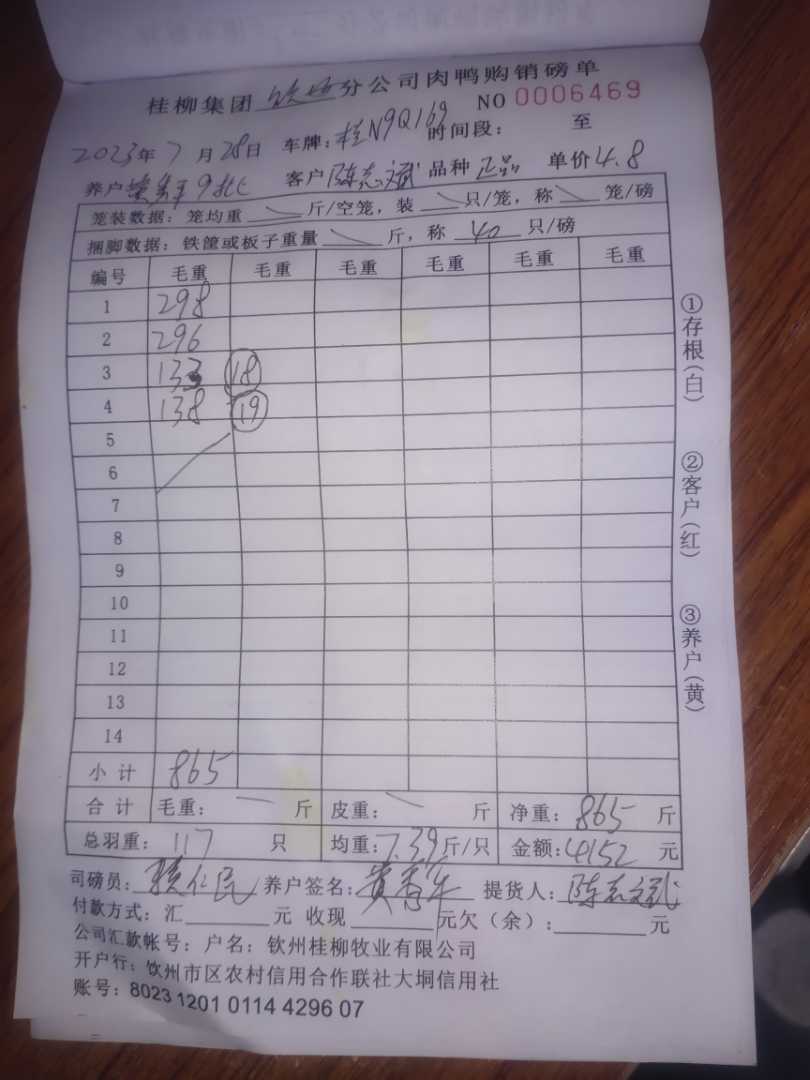 桂柳集团 钦州 分公司肉鸭购销磅单
NO 0006469
2023年 7 月 28日 车牌: 桂N9Q169 时间段: 至
养户 9批 客户 陈志斌 品种 正品 单价 4.8
笼装数据: 笼均重 斤/空笼, 装 只/笼, 称 笼/磅
捆脚数据: 铁筐或板子重量 斤, 称 40 只/磅
编号 毛重 毛重 毛重 毛重 毛重 毛重
1 298
2 296
3 133 18
4 138 19
5
6
7
8
9
10
11
12
13
14
小 计 865
合 计 毛重: 斤 皮重: 斤 净重: 865 斤
总羽重: 117 只 均重: 7.39 斤/只 金额: 4152 元
司磅员: 养户签名: 提货人: 陈志斌
付款方式: 汇 元 收现 元欠(余): 元
公司汇款帐号: 户名: 钦州桂柳牧业有限公司
开户行: 钦州市区农村信用合作联社大垌信用社
账号: 8023 1201 0114 4296 07
①存根(白)
②客户(红)
③养户(黄)